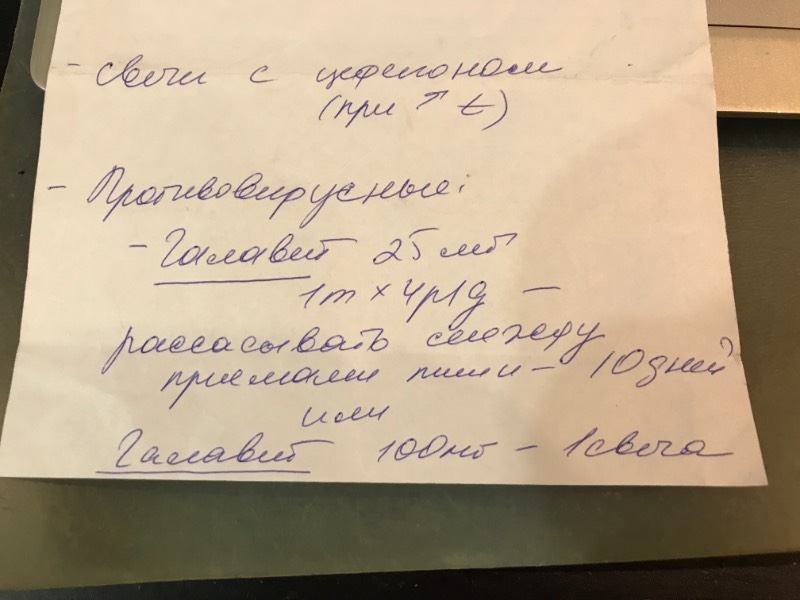 - свечи с цефеконом
(при ↑ t)
- Противовирусные:
- Галавит 25 мг
1т × 4р/д -
рассасывать между
приемами пищи - 10 дней
или
Галавит 100 мг - 1 свеча